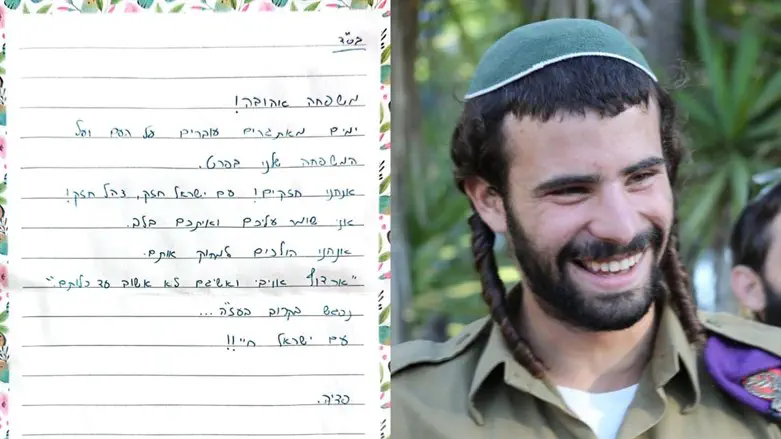 בס"ד
משפחה אהובה!
ימים מאתגרים עוברים על העם ועל
המשפחה שלי בפרט.
אנחנו חזקים! עם ישראל חזק, צה"ל חזק!
אני שומר עליכם ואיתכם בלב.
אנחנו הולכים למחוק אותם.
"ארדוף אויבי ואשיגם לא אשוב עד כלותם"
נפגש בקרוב בעז"ה...
עם ישראל חי!!
פדיה.